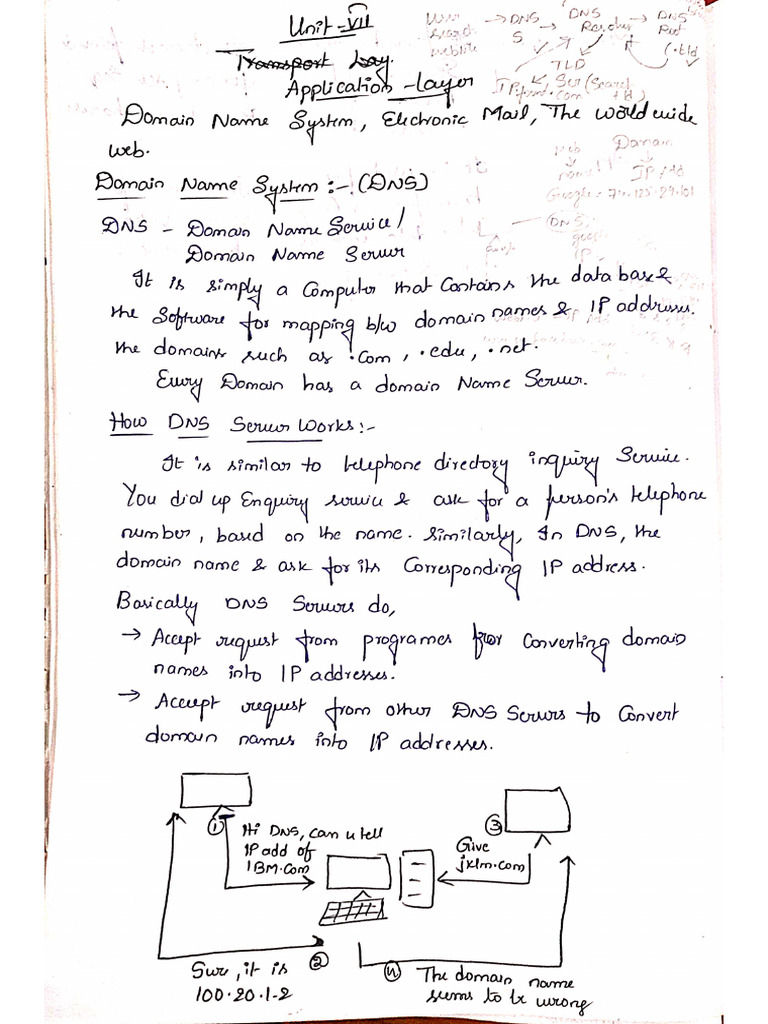 Unit-VII
User → DNS
DNS
Resolver → DNS
Root
Search
website
S
(.tld
TLD
Ser (Search
tld)
Transport Lay.
Application -layer
Domain Name System, Electronic Mail, The world wide
web.
Web
Domain
name
IP
Google = 74.125.29.101
DNS
IP
Domain Name System :- (DNS)
DNS - Domain Name Service /
Domain Name Server
It is simply a Computer that Contains the database &
the Software for mapping b/w domain names & IP addresses.
the domains such as .com, .edu, .net.
Every Domain has a domain Name Server.
How DNS Server Works :-
It is similar to telephone directory inquiry Service.
You dial up Enquiry service & ask for a person's telephone
number, based on the name. Similarly, In DNS, the
domain name & ask for its Corresponding IP address.
Basically DNS Servers do,
→ Accept request from programes for Converting domain
names into IP addresses.
→ Accept request from other DNS Servers to Convert
domain names into IP addresses.
① Hi DNS, Can u tell
IP add of
IBM.Com
③
Give
jklm.com
② Sure, it is
100.20.1.2
④ The domain name
seems to be wrong